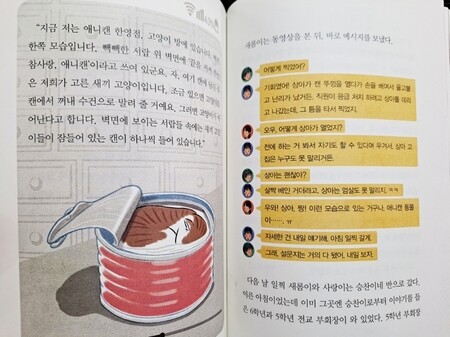 "지금 저는 애니캔 한영점, 고양이 방에 있습니다.
한쪽 모습입니다. 빽빽한 서랍 위 벽면에
참사랑, 애니캔'이라고 쓰여 있군요. 자, 여기 캔에
은 저희가 고른 새끼 고양이입니다. 조금 있으면
캔에서 꺼내 수건으로 말려 줄 거예요. 그러면
어난다고 합니다. 벽면에 보이는 서랍들 속에는
이들이 잠들어 있는 캔이 하나씩 들어 있습니다."
새롬이는 동영상을 본 뒤, 바로 메시지를 보냈다.
어떻게 찍었어?
기회였어! 상아가 캔 뚜껑을 열다가 손을 베여서 울고불
고 난리가 났거든. 직원이 응급 처치 하려고 상아를 데리
고 나갔는데, 그 틈을 타서 찍었지.
오우, 어떻게 상아가 열었지?
전에 하는 거 봐서 자기도 할 수 있다며 우겨서. 상아 고
집은 누구도 못 말리거든.
상아는 괜찮아?
살짝 베인 거더라고. 상아는 엄살도 못 말리지. ㅋㅋ
우와! 상아, 짱! 이런 모습으로 있는 거구나, 애니캔 동물
이……. ㅠ
자세한 건 내일 얘기해. 아침 일찍 갈게.
그래, 설문지는 거의 다 됐어. 내일 보자.
다음 날 일찍 새롬이와 사랑이는 승찬이네 반으로 갔다.
이른 아침이었는데 이미 그곳엔 승찬이로부터 이야기를 들
은 6학년과 5학년 전교 부회장이 와 있었다. 5학년 부회장